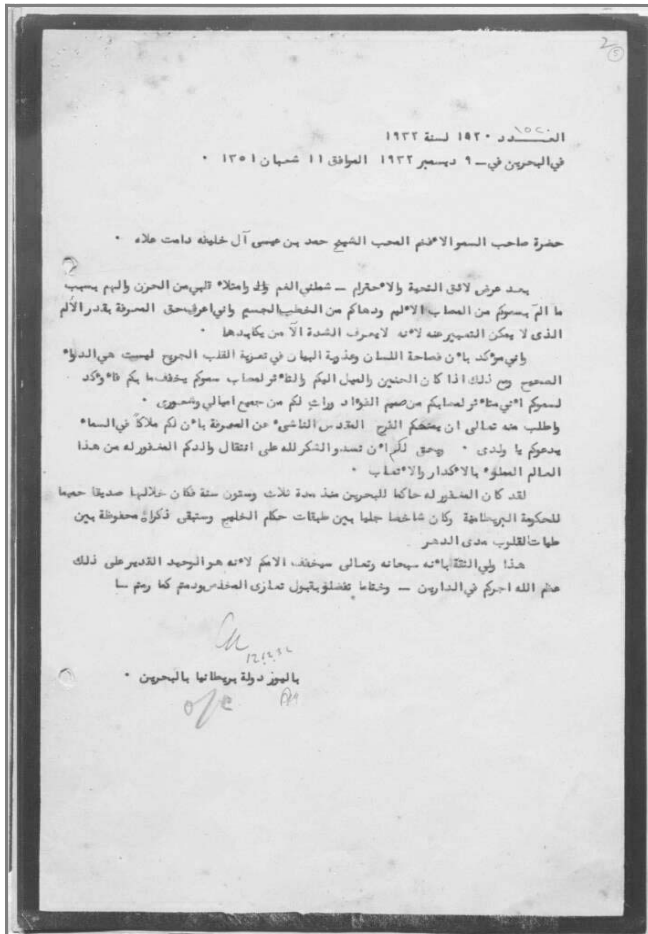 2
5
١٥٢٠
العـــدد ١٥٢٠ لسنة ١٩٣٢
في البحرين في ــ ٩ ديسمبر ١٩٣٢ الموافق ١١ شعبان ١٣٥١ ٠
حضرة صاحب السمو الافخم المحب الشيخ حمد بن عيسى آل خليفه دامت علاه ٠
بعد عرض لائق التحية والاحترام ــ شملني الغم والم وامتلاء قلبي من الحزن والهم بسبب
ما المّ بسموكم من المصاب الاليم ودهاكم من الخطب الجسيم واني اعرف حق المعرفة بقدر الألم
الذى لا يمكن التعبير عنه لانه لا يعرف الشدة الاّ من يكابدها ٠
واني مؤكد بأن فصاحة اللسان وعذوبة البيان في تعزية القلب الجريح ليست هي الدواء
الصحيح ومع ذلك اذا كان الحنين والميل اليكم والتاثر لمصاب سموكم يخفف ما بكم فاؤكد
لسموكم انني متاثر لمصابكم من صميم الفؤاد وراث لكم من جميع اميالي وشعورى ٠
واطلب منه تعالى ان يمنحكم الفرح المقدس الناشىء عن المعرفة بأن لكم ملاكاً في السماء
يدعوكم يا ولدى ٠ ويحق لكم ان تسدو الشكر لله على انتقال والدكم المغفور له من هذا
العالم المملوء بالاكدار والاتعاب ٠
لقد كان المغفور له حاكما للبحرين منذ مدة ثلاث وستون سنة فكان خلالها صديقا حميما
للحكومة البريطانية وكان شاخصا جليا بين طبقات حكام الخليج وستبقى ذكراه محفوظة بين
طيات القلوب مدى الدهر
هذا ولي الثقة بانه سبحانه وتعالى سيخفف الامكم لانه هو الوحيد القدير على ذلك
عظم الله اجركم في الدارين ــ وختاما تفضلو بقبول تعازى المخلص ودمتم كما رمتم سا
12.12.32
باليوز دولة بريطانيا بالبحرين ٠
o/c